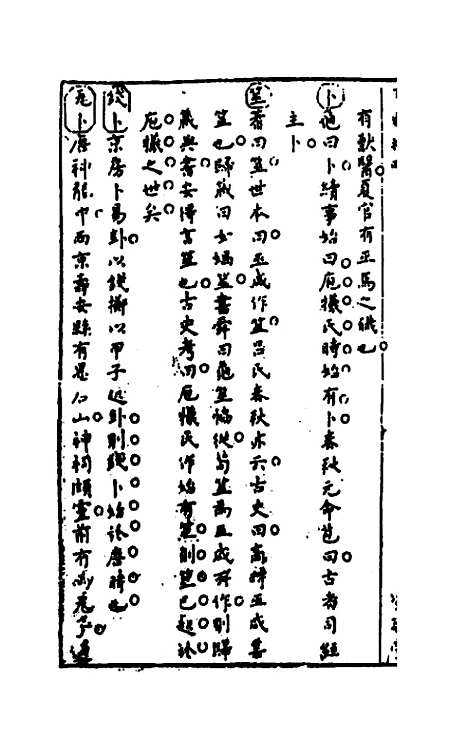 有獸醫夏官有巫馬之職也
卜 通曰卜續事始曰庖犧氏時始有卜春秋元命苞曰古者司怪
主卜
筮 者曰筮世本曰巫咸作筮呂氏春秋亦云古史曰高辛巫咸善
筮也歸藏曰女媧筮書舜曰龜筮協從前筮為巫咸所作則歸
藏與書安得言筮也古史考曰庖犧氏作始有筮則筮已起於
庖犧之世矣
錢卜 京房卜易卦以錢擲以甲子起卦則錢卜始於唐時也
卜唐科能中西京壽安縣有墨石山神祠頗靈前有兩瓦子過